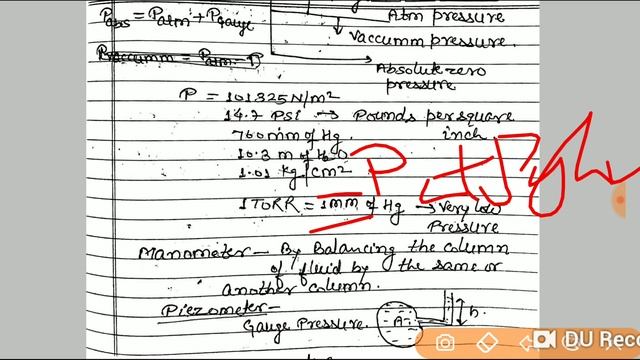 Pabs = Patm + Pgauge
Atm pressure
Vaccumm pressure.
Pvaccumm = Patm - P
Absolute zero
pressure
P = 101325 N/m²
14.7 PSI → Pounds per square
inch.
760 mm of Hg.
10.3 m of H₂O
1.01 kg/cm²
P
1 TORR = 1mm of Hg → Very low
Pressure
Manometer - By Balancing the column
of fluid by the same or
another column.
Piezometer -
Gauge Pressure.
A
h.
DU Rec